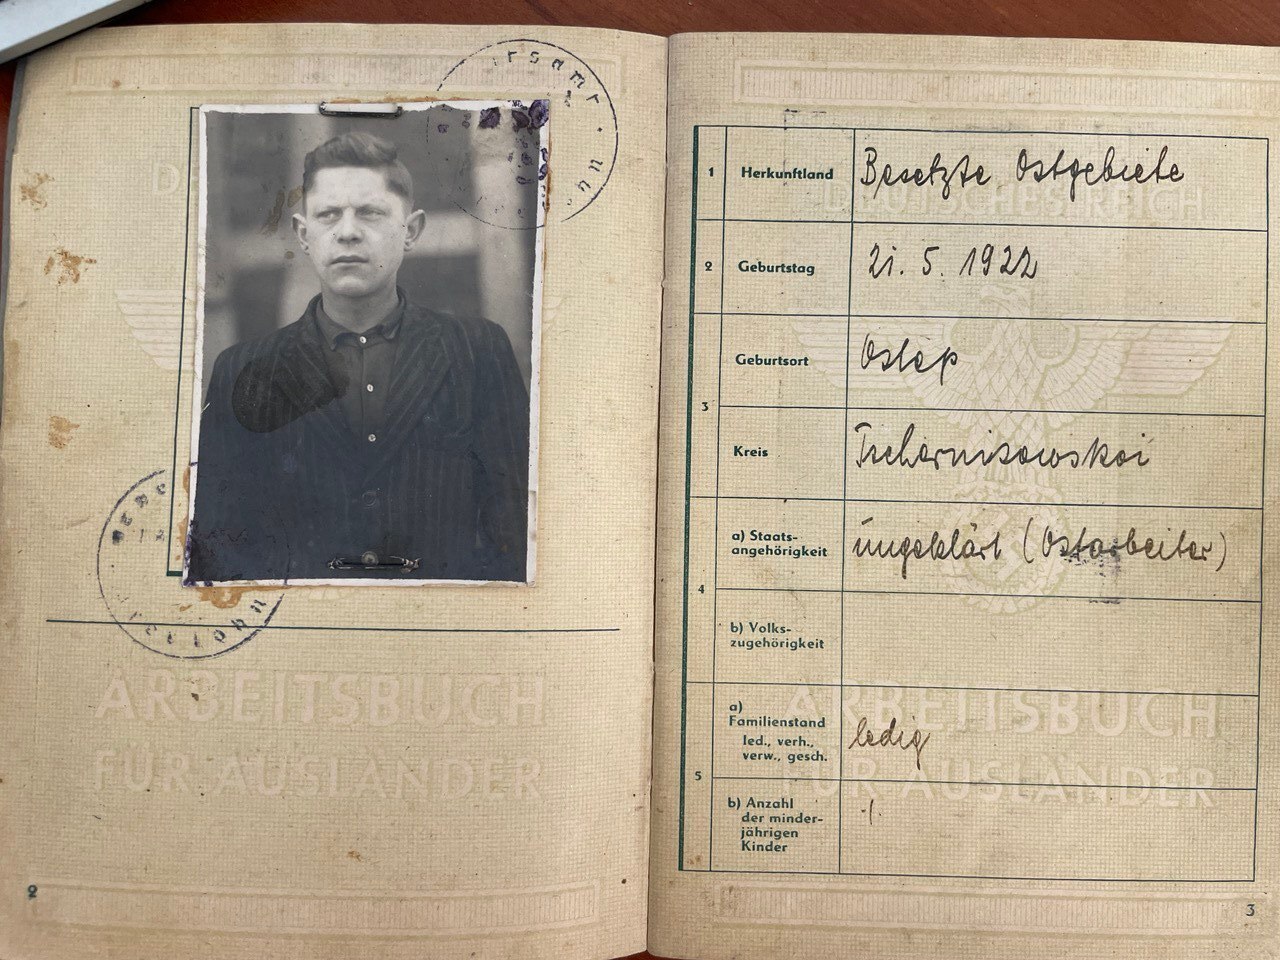 DEUTSCHES REICH
ARBEITSBUCH
FÜR AUSLÄNDER
2
1 Herkunftland Besetzte Ostgebiete
2 Geburtstag 21. 5. 1922
3
Geburtsort Oslep
Kreis Tschernikowskoi
4
a) Staats-
angehörigkeit ungeklärt (Ostarbeiter)
b) Volks-
zugehörigkeit
5
a)
Familienstand ledig
led., verh.,
verw., gesch.
b) Anzahl
der minder-
jährigen
Kinder ./.
DEUTSCHES REICH
ARBEITSBUCH
FÜR AUSLÄNDER
3